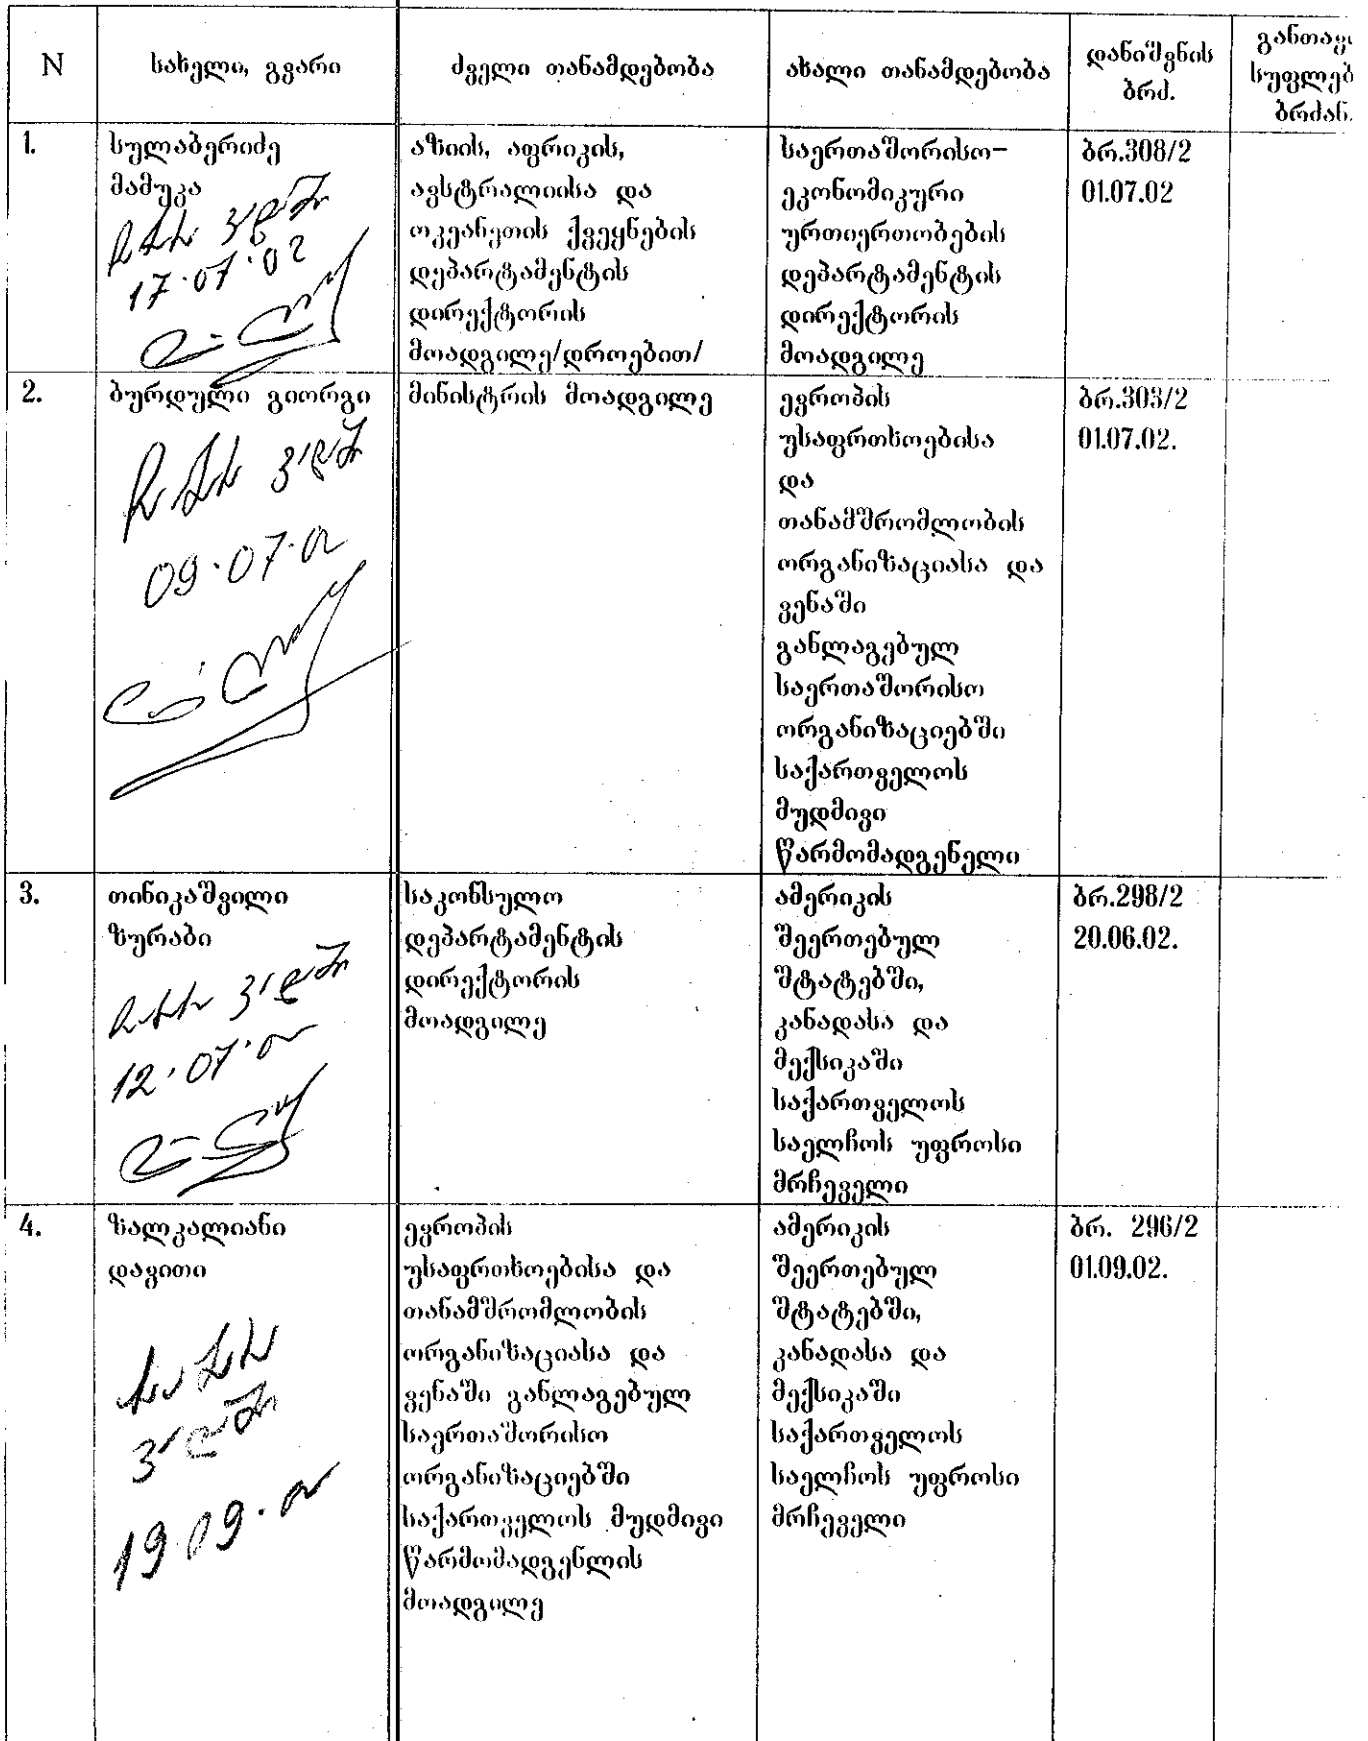 N
სახელი, გვარი
ძველი თანამდებობა
ახალი თანამდებობა
დანიშვნის
ბრძ.
1.
სულაბერიძე
მამუკა
17.07.02
აზიის, აფრიკის,
ავსტრალიისა და
ოკეანეთის ქვეყნების
დეპარტამენტის
დირექტორის
მოადგილე/დროებით/
საერთაშორისო-
ეკონომიკური
ურთიერთობების
დეპარტამენტის
დირექტორის
მოადგილე
ბრ.308/2
01.07.02
2.
ბურდული გიორგი
09.07.02
მინისტრის მოადგილე
ევროპის
უსაფრთხოებისა
და
თანამშრომლობის
ორგანიზაციასა და
ვენაში
განლაგებულ
საერთაშორისო
ორგანიზაციებში
საქართველოს
მუდმივი
წარმომადგენელი
ბრ.303/2
01.07.02.
3.
თინიკაშვილი
ზურაბი
12.07.02
საკონსულო
დეპარტამენტის
დირექტორის
მოადგილე
ამერიკის
შეერთებულ
შტატებში,
კანადასა და
მექსიკაში
საქართველოს
საელჩოს უფროსი
მრჩეველი
ბრ.298/2
20.06.02.
4.
ზალკალიანი
დავითი
19.09.02
ევროპის
უსაფრთხოებისა და
თანამშრომლობის
ორგანიზაციასა და
ვენაში განლაგებულ
საერთაშორისო
ორგანიზაციებში
საქართველოს მუდმივი
წარმომადგენლის
მოადგილე
ამერიკის
შეერთებულ
შტატებში,
კანადასა და
მექსიკაში
საქართველოს
საელჩოს უფროსი
მრჩეველი
ბრ. 296/2
01.09.02.